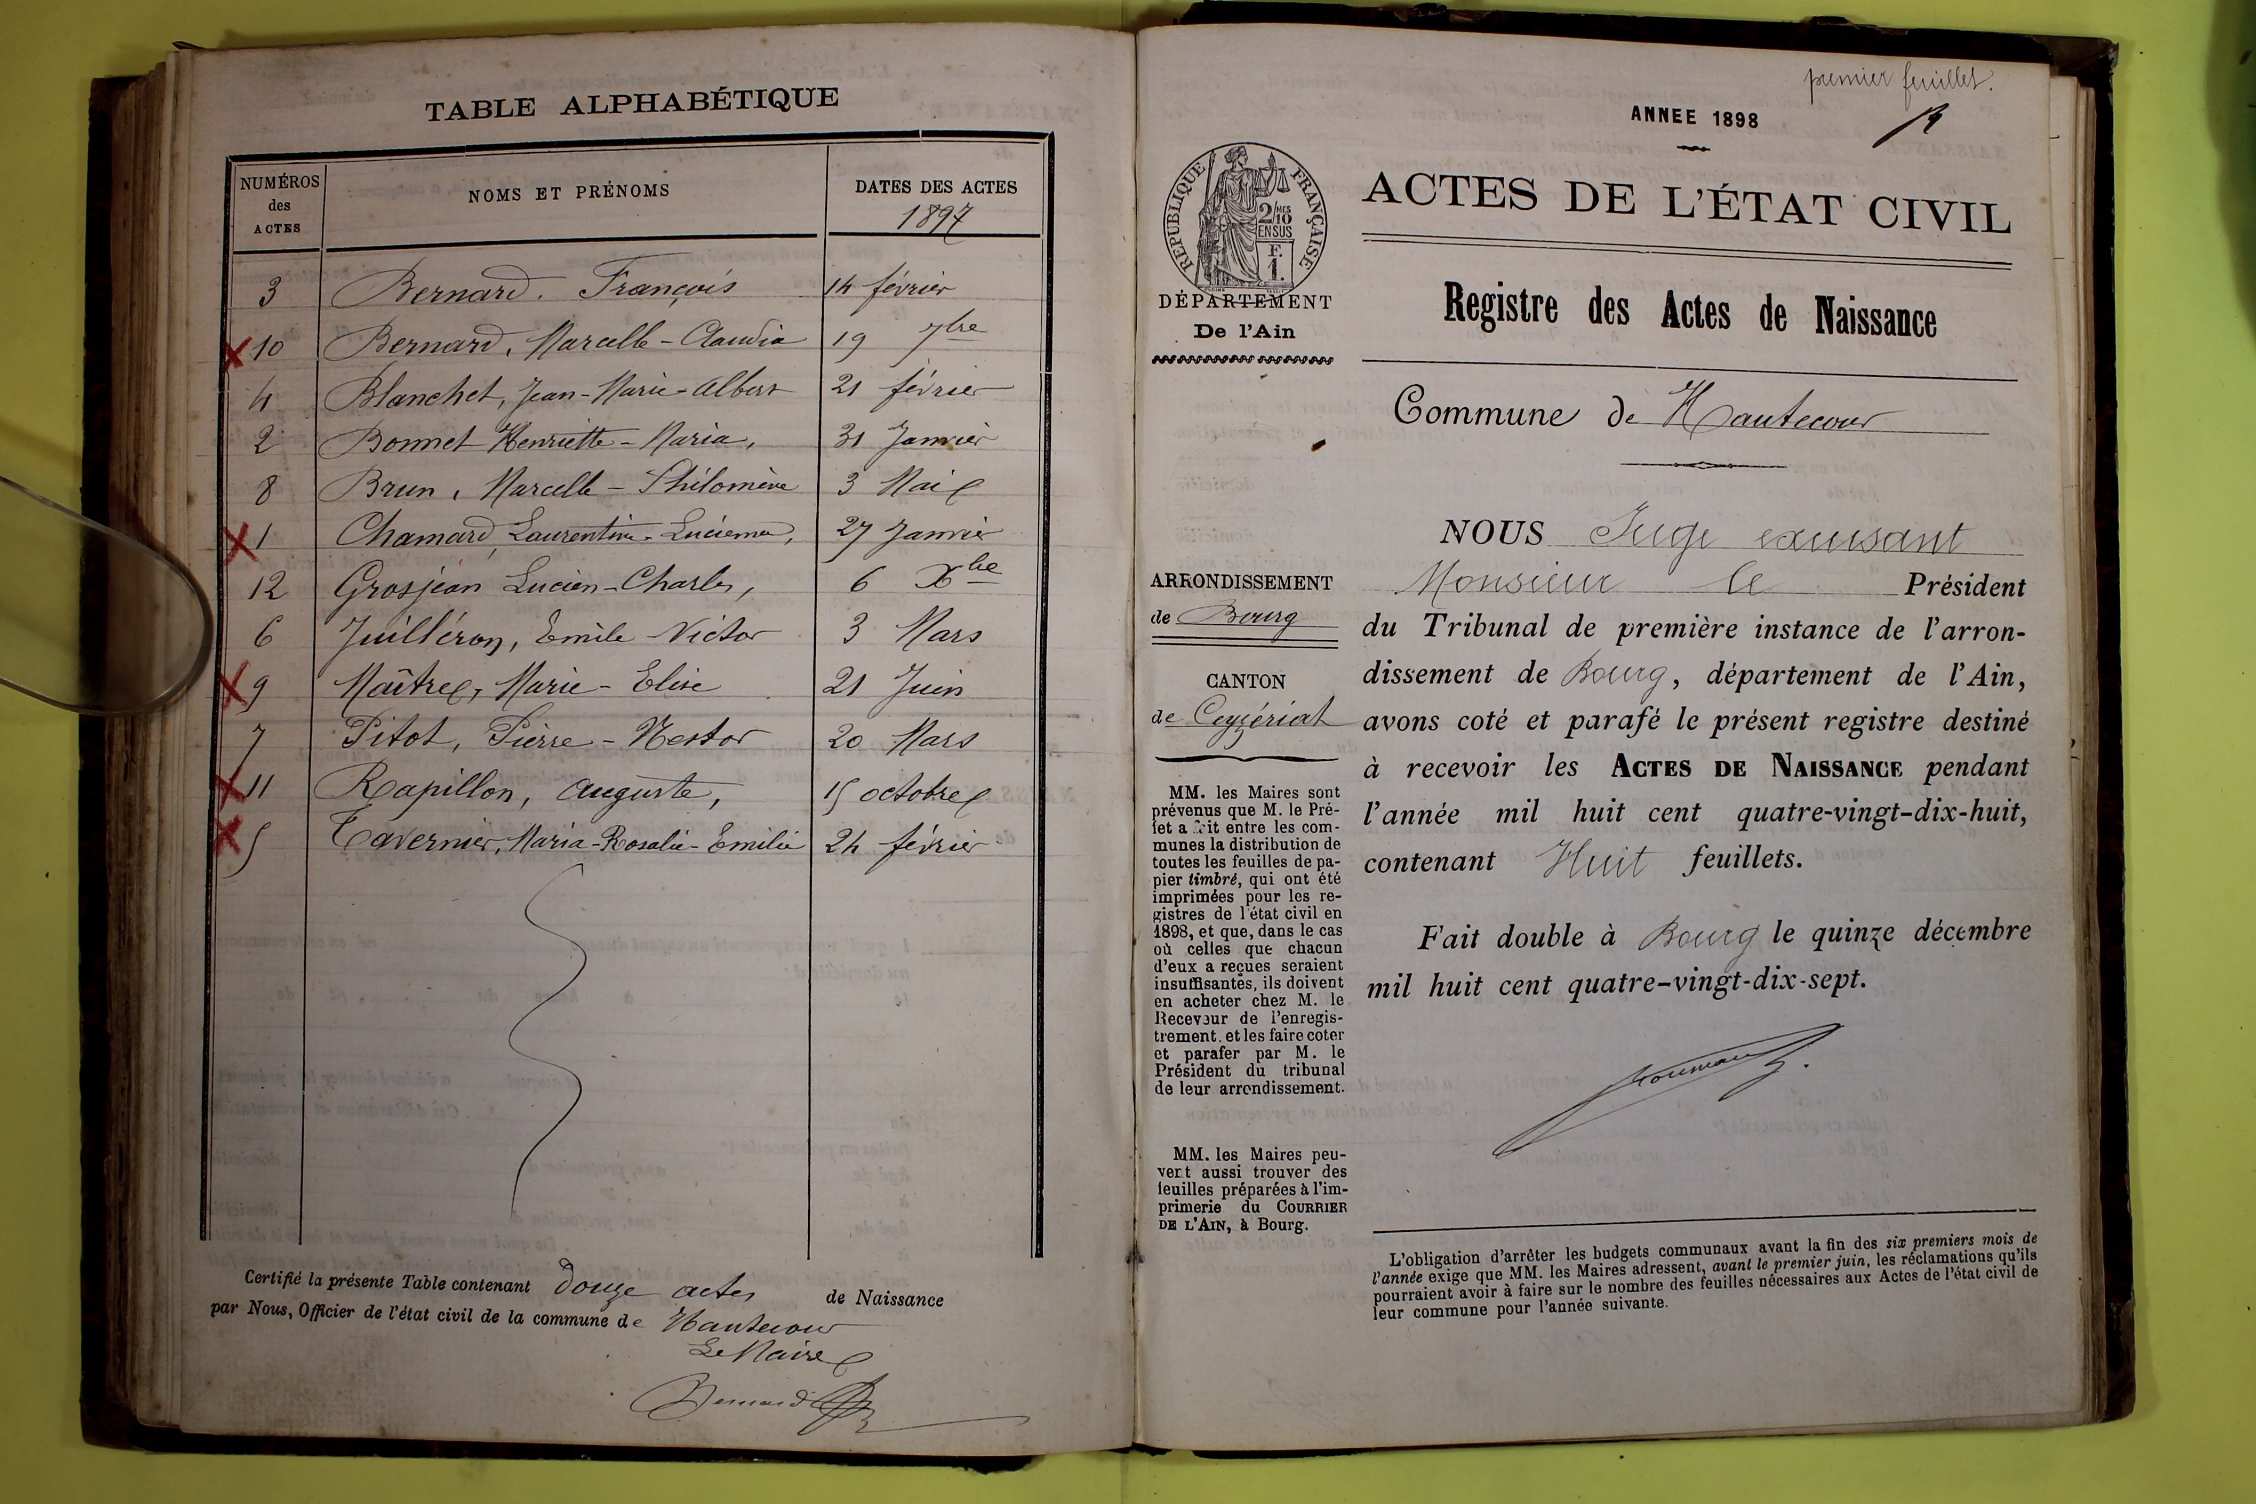 TABLE ALPHABÉTIQUE
NUMÉROS
des
ACTES
NOMS ET PRÉNOMS
DATES DES ACTES
1897
3 Bernard. François 14 février
10 Bernard, Marcelle-Claudia 19 7bre
4 Blanchet, Jean-Marie-Albert 21 février
2 Bonnet Henriette-Maria, 31 Janvier
8 Brun, Marcelle-Philomène 3 Mai
1 Chamard, Laurentine-Lucienne, 27 Janvier
12 Grosjean Lucien-Charles, 6 Xbre
6 Juilléron, Emile-Victor 3 Mars
9 Maître, Marie-Elise 21 Juin
7 Pitot, Pierre-Nestor 20 Mars
11 Rapillon, Auguste, 15 octobre
5 Tavernier, Maria-Rosalie-Emilie 24 février
Certifié la présente Table contenant douze actes de Naissance
par Nous, Officier de l'état civil de la commune de Hautecour
Le Maire
Bernard
premier feuillet.
ANNEE 1898
RÉPUBLIQUE FRANÇAISE
2/10 MES
EN SUS
F.
1.
DÉPARTEMENT
De l'Ain
ARRONDISSEMENT
de Bourg
CANTON
de Ceyzériat
MM. les Maires sont
prévenus que M. le Pré-
fet a fait entre les com-
munes la distribution de
toutes les feuilles de pa-
pier timbré, qui ont été
imprimées pour les re-
gistres de l'état civil en
1898, et que, dans le cas
où celles que chacun
d'eux a reçues seraient
insuffisantes, ils doivent
en acheter chez M. le
Receveur de l'enregis-
trement. et les faire coter
et parafer par M. le
Président du tribunal
de leur arrondissement.
MM. les Maires peu-
vent aussi trouver des
feuilles préparées à l'im-
primerie du COURRIER
DE L'AIN, à Bourg.
ACTES DE L'ÉTAT CIVIL
Registre des Actes de Naissance
Commune de Hautecour
NOUS Juge excusant
Monsieur le Président
du Tribunal de première instance de l'arron-
dissement de Bourg, département de l'Ain,
avons coté et parafé le présent registre destiné
à recevoir les ACTES DE NAISSANCE pendant
l'année mil huit cent quatre-vingt-dix-huit,
contenant Huit feuillets.
Fait double à Bourg le quinze décembre
mil huit cent quatre-vingt-dix-sept.
L'obligation d'arrêter les budgets communaux avant la fin des six premiers mois de
l'année exige que MM. les Maires adressent, avant le premier juin, les réclamations qu'ils
pourraient avoir à faire sur le nombre des feuilles nécessaires aux Actes de l'état civil de
leur commune pour l'année suivante.